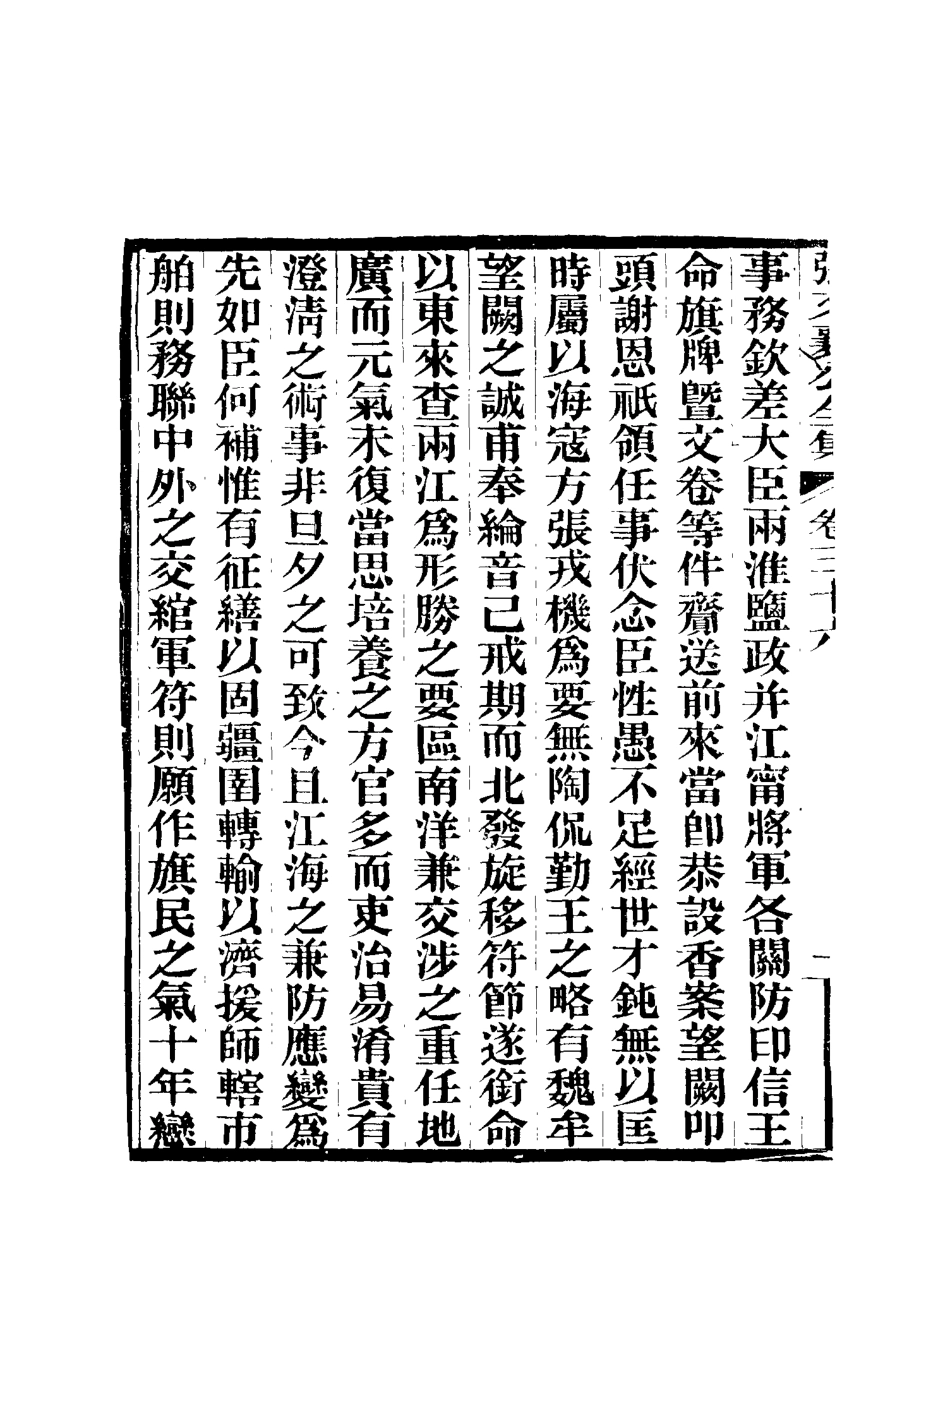 張文襄公全集 卷三十八 二
事務欽差大臣兩淮鹽政并江甯將軍各關防印信王
命旗牌曁文卷等件齎送前來當卽恭設香案望闕叩
頭謝恩祇領任事伏念臣性愚不足經世才鈍無以匡
時屬以海寇方張戎機爲要無陶侃勤王之略有魏牟
望闕之誠甫奉綸音已戒期而北發旋移符節遂銜命
以東來查兩江爲形勝之要區南洋兼交涉之重任地
廣而元氣未復當思培養之方官多而吏治易淆貴有
澄淸之術事非旦夕之可致今且江海之兼防應變爲
先如臣何補惟有征繕以固疆圉轉輸以濟援師轄市
舶則務聯中外之交綰軍符則願作旗民之氣十年戀